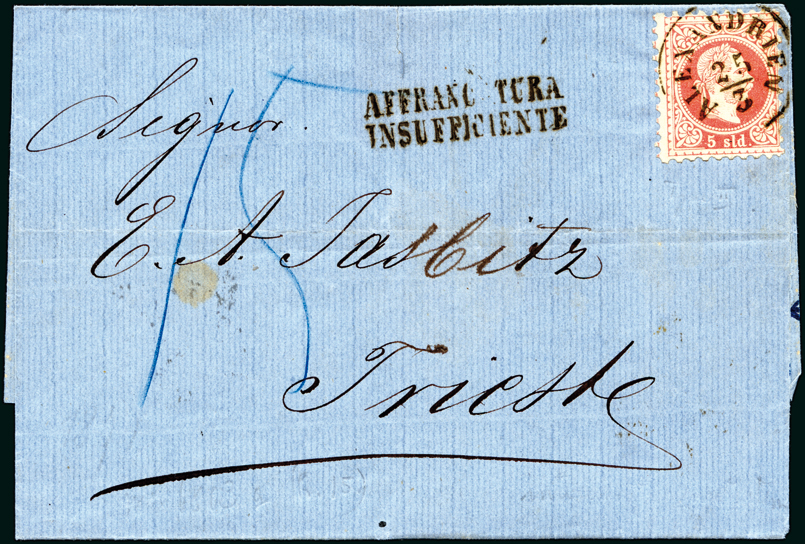 AFFRANC TURA
INSUFFICIENTE
ALEXANDRIEN
25/3
5 sld.
15
Signor.
E. A. Tasbitz
Trieste